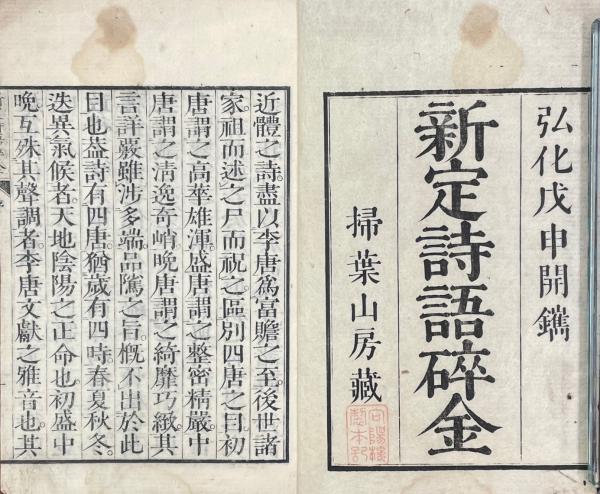 弘化戊申開鐫
新定詩語碎金
掃葉山房藏
近體之詩。盡以李唐爲富贍之至。後世諸
家。祖而述之。尸而祝之。區別四唐之目。初
唐謂之高華雄渾。盛唐謂之整密精嚴。中
唐謂之清逸奇峭。晩唐謂之綺靡巧緻。其
言詳覈。雖涉多端。品隲之旨。慨不出於此
目也。葢詩有四唐。猶歲有四時。春夏秋冬。
迭異氣候者。天地陰陽之正命也。初盛中
晩互殊其聲調者。李唐文獻之雅音也。其